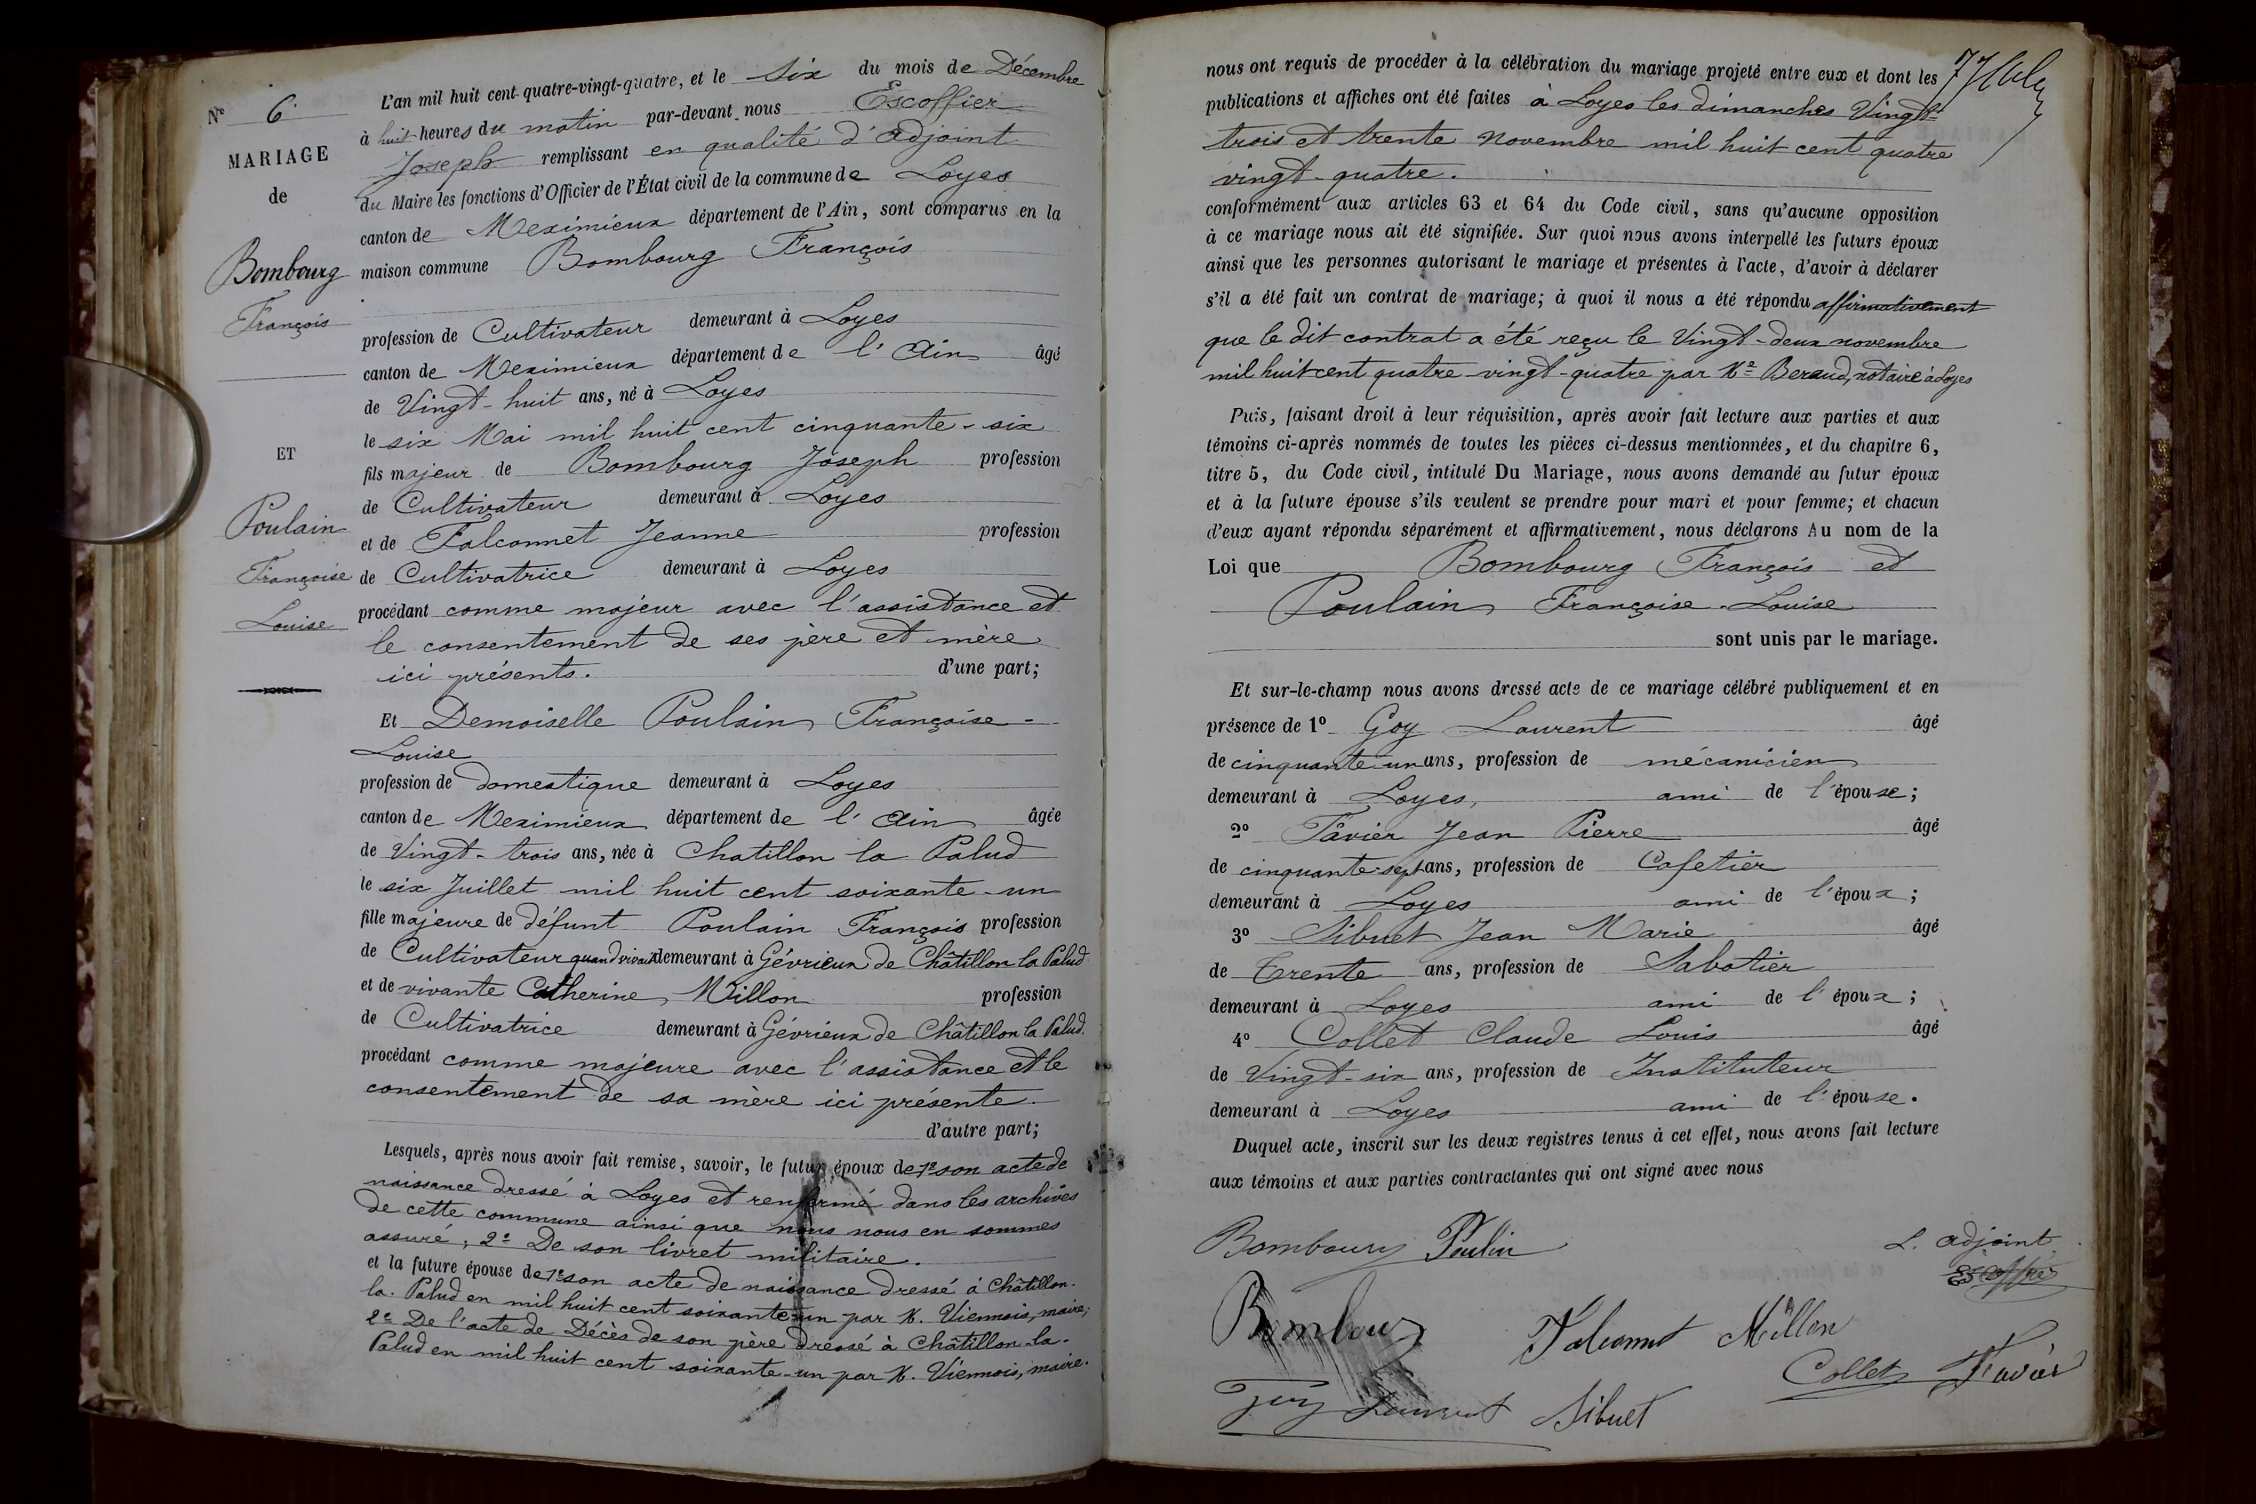 N° 6
MARIAGE
de
Bombourg
François
ET
Poulain
Françoise
Louise
L'an mil huit cent quatre-vingt-quatre, et le six du mois de Décembre
à huit heures du matin par-devant nous Escoffier
Joseph remplissant en qualité d'adjoint
du Maire les fonctions d'Officier de l'État civil de la commune de Loyes
canton de Meximieux département de l'Ain, sont comparus en la
maison commune Bombourg François
profession de Cultivateur demeurant à Loyes
canton de Meximieux département de l'Ain âgé
de Vingt-huit ans, né à Loyes
le six Mai mil huit cent cinquante-six
fils majeur de Bombourg Joseph profession
de Cultivateur demeurant à Loyes
et de Falconnet Jeanne profession
de Cultivatrice demeurant à Loyes
procédant comme majeur avec l'assistance et
le consentement de ses père et mère
ici présents. d'une part;
Et Demoiselle Poulain Françoise-
Louise
profession de domestique demeurant à Loyes
canton de Meximieux département de l'Ain âgée
de Vingt-trois ans, née à Chatillon la Palud
le six Juillet mil huit cent soixante-un
fille majeure de défunt Poulain François profession
de Cultivateur quand vivait demeurant à Gévrieux de Châtillon la Palud
et de vivante Catherine Millon profession
de Cultivatrice demeurant à Gévrieux de Châtillon la Palud.
procédant comme majeure avec l'assistance et le
consentement de sa mère ici présente.
d'autre part;
Lesquels, après nous avoir fait remise, savoir, le futur époux de 1° son acte de
naissance dressé à Loyes et renfermé dans les archives
de cette commune ainsi que nous nous en sommes
assuré; 2° De son livret militaire.
et la future épouse de 1° son acte de naissance dressé à Châtillon-
la-Palud en mil huit cent soixante-un par M. Viennois, maire;
2° De l'acte de Décès de son père dressé à Châtillon-la-
Palud en mil huit cent soixante-un par M. Viennois, maire.
nous ont requis de procéder à la célébration du mariage projeté entre eux et dont les
publications et affiches ont été faites à Loyes les dimanches Vingt-
trois et trente novembre mil huit cent quatre
vingt-quatre.
conformément aux articles 63 et 64 du Code civil, sans qu'aucune opposition
à ce mariage nous ait été signifiée. Sur quoi nous avons interpellé les futurs époux
ainsi que les personnes autorisant le mariage et présentes à l'acte, d'avoir à déclarer
s'il a été fait un contrat de mariage; à quoi il nous a été répondu affirmativement
que le dit contrat a été reçu le Vingt-deux novembre
mil huit cent quatre-vingt-quatre par Me Beraud, notaire à Loyes
Puis, faisant droit à leur réquisition, après avoir fait lecture aux parties et aux
témoins ci-après nommés de toutes les pièces ci-dessus mentionnées, et du chapitre 6,
titre 5, du Code civil, intitulé Du Mariage, nous avons demandé au futur époux
et à la future épouse s'ils veulent se prendre pour mari et pour femme; et chacun
d'eux ayant répondu séparément et affirmativement, nous déclarons Au nom de la
Loi que Bombourg François et
Poulain Françoise-Louise
sont unis par le mariage.
Et sur-le-champ nous avons dressé acte de ce mariage célébré publiquement et en
présence de 1° Goy Laurent âgé
de cinquante-un ans, profession de mécanicien
demeurant à Loyes, ami de l'épouse;
2° Favier Jean Pierre âgé
de cinquante-sept ans, profession de Cafetier
demeurant à Loyes ami de l'époux;
3° Sibuet Jean Marie âgé
de Trente ans, profession de Sabotier
demeurant à Loyes ami de l'époux;
4° Collet Claude Louis âgé
de Vingt-six ans, profession de Instituteur
demeurant à Loyes ami de l'épouse.
Duquel acte, inscrit sur les deux registres tenus à cet effet, nous avons fait lecture
aux témoins et aux parties contractantes qui ont signé avec nous
Bombourg Poulin L. adjoint
Escoffier
Bombourg Falconnet Millon
Collet Favier
Goy Laurent Sibuet